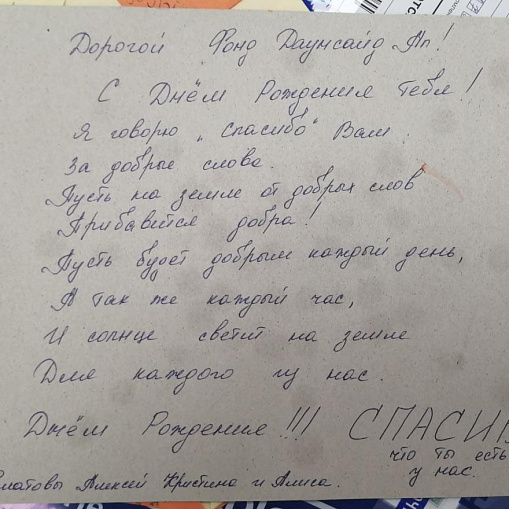 Дорогой Фонд Даунсайд Ап!
С Днём Рождения тебя!
Я говорю „Спасибо" Вам
За добрые слова.
Пусть на земле от добрых слов
Прибавится добра!
Пусть будет добрым каждый день,
А так же каждый час,
И солнце светит на земле
Для каждого из нас.
Днём Рождения!!! СПАСИБ
что ты есть
у нас.
матовы Алексей Кристина и Алиса.